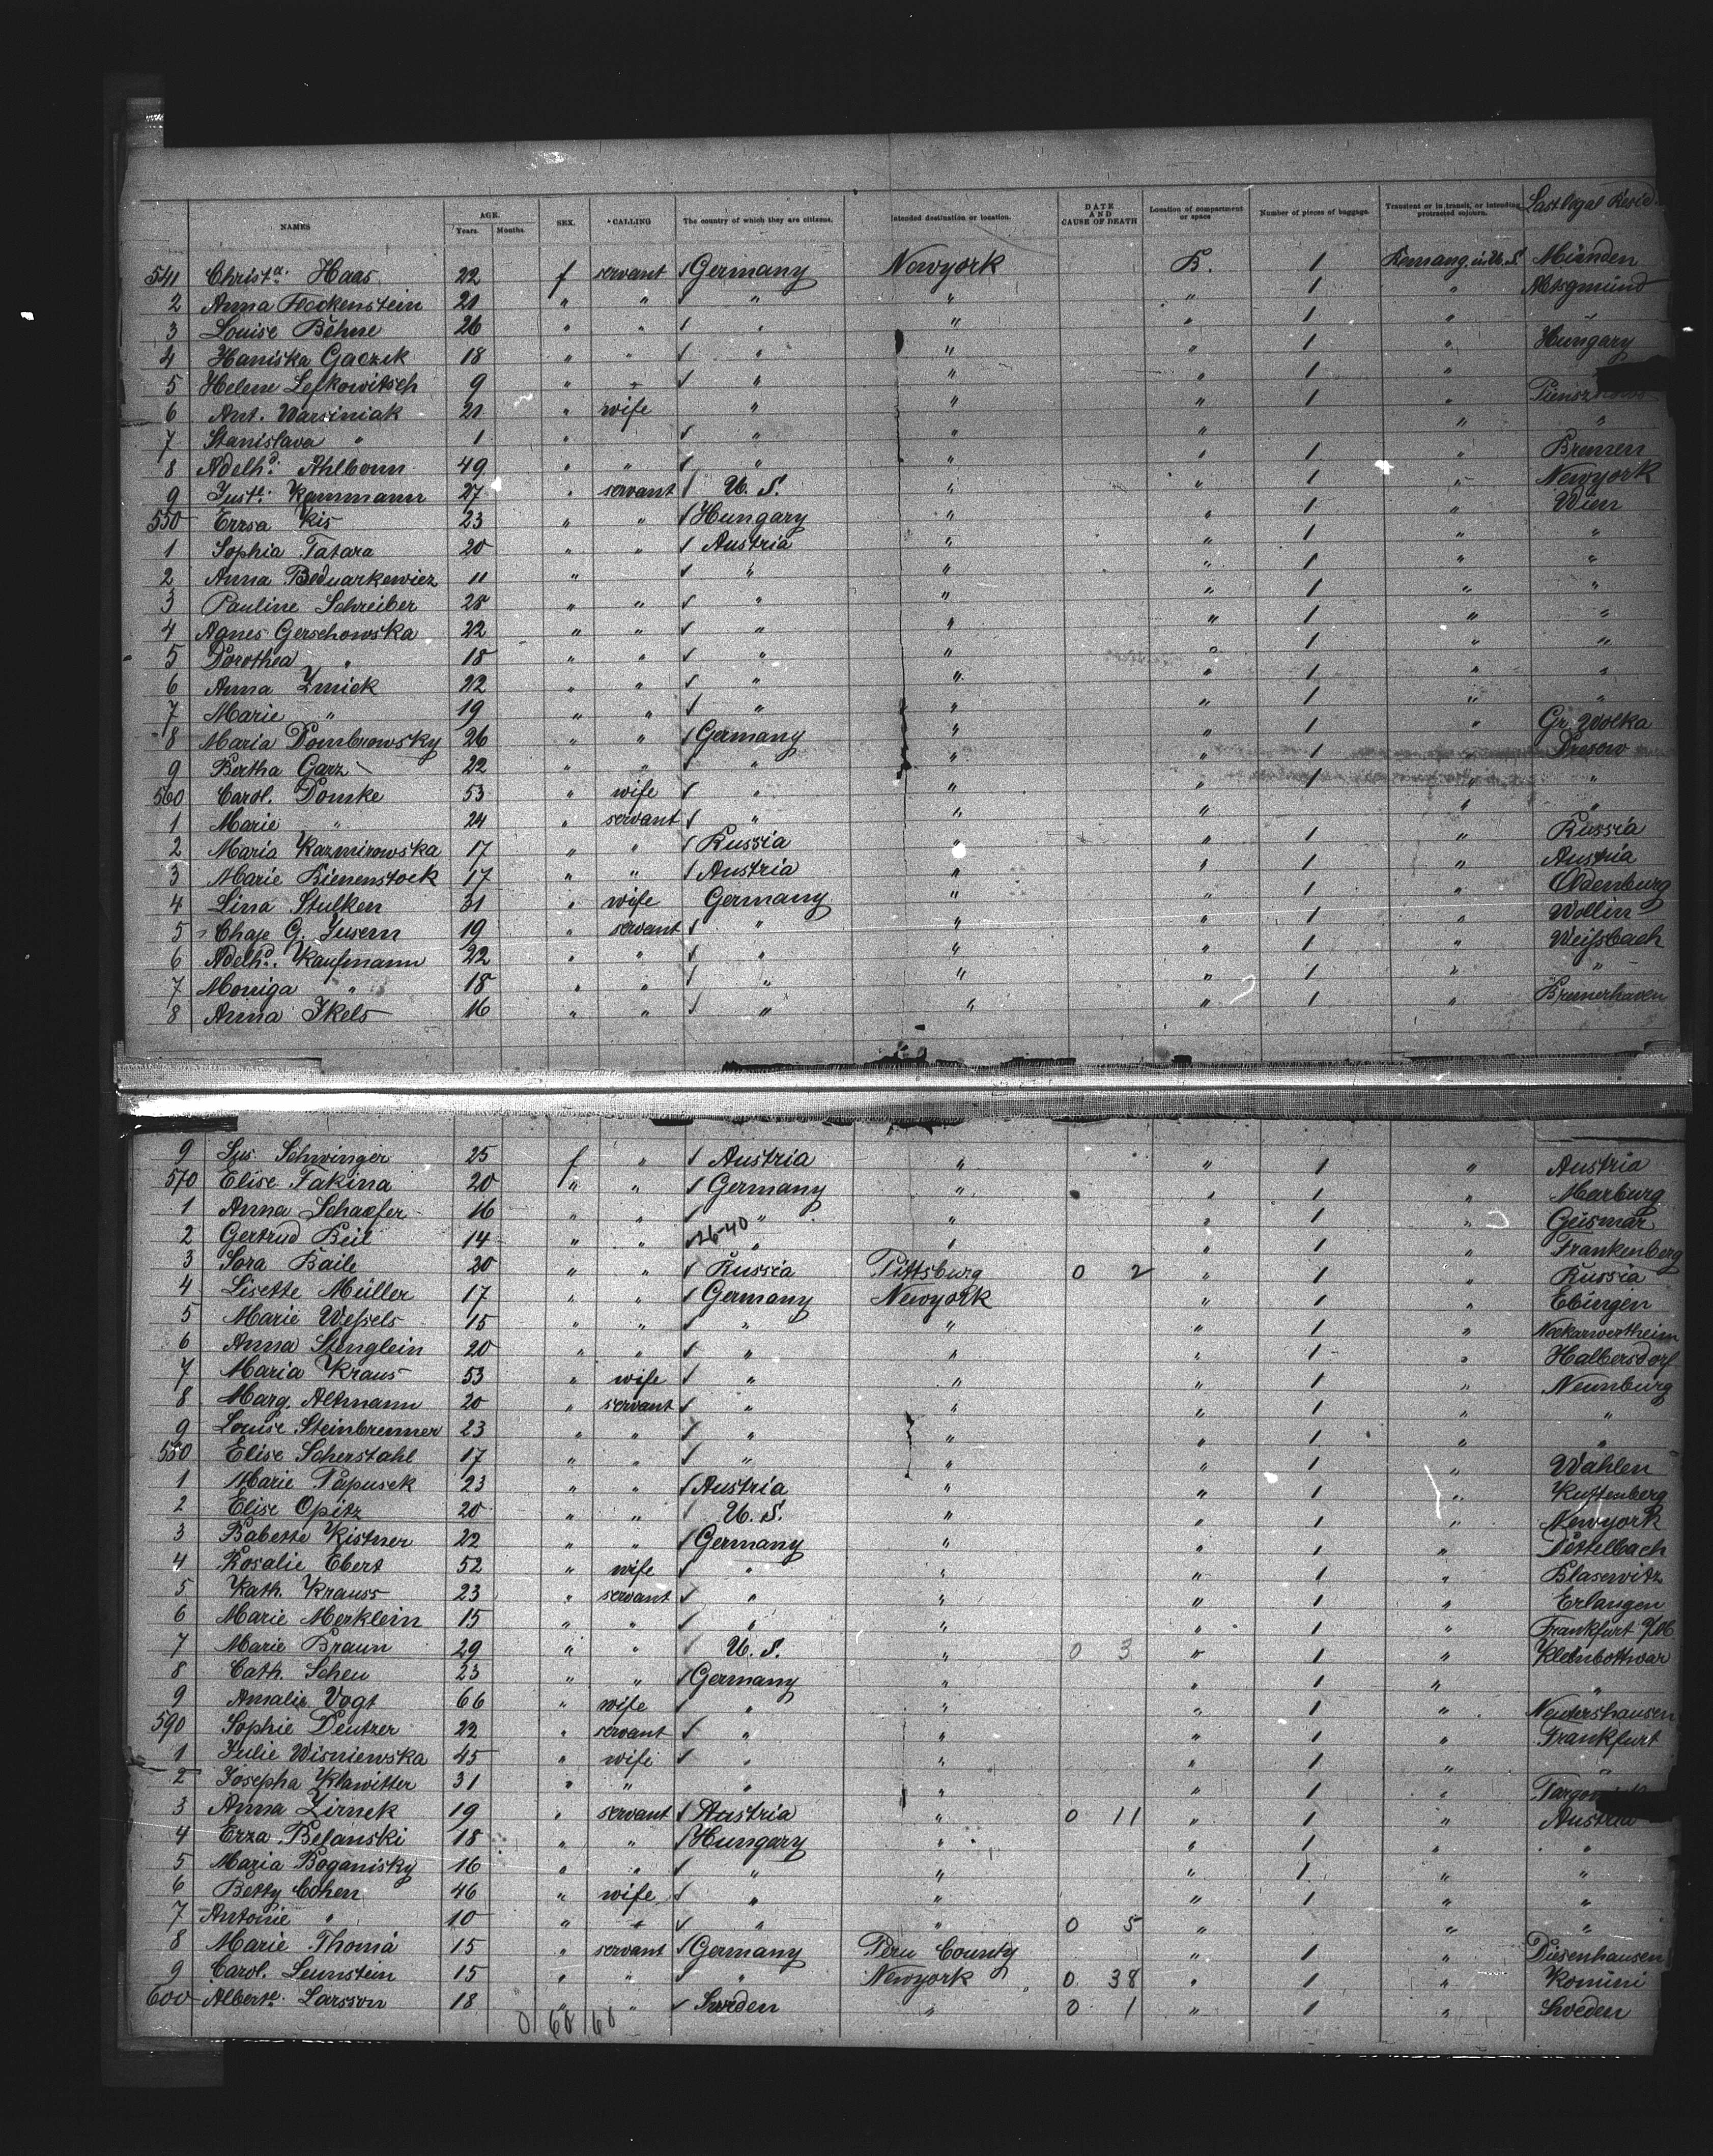 NAMES AGE. Years. Months. SEX. CALLING The country of which they are citizens. Intended destination or location. DATE AND CAUSE OF DEATH Location of compartment or space Number of pieces of baggage. Transient or in transit, or intending protracted sojourn. Last legal Resid.
541 Christa. Haas 22 f servant Germany Newyork B. 1 Remang. in U.S. Münden
2 Anna Flockenstein 21 " " " " " 1 " Abtsgmünd
3 Louise Böhne 26 " " " " " 1 " "
4 Haniska Gaczek 18 " " " " " 1 " Hungary
5 Helene Lefkowitsch 9 " " " " " 1 "
6 Ant. Warsiniak 21 " wife " " " 1 "
7 Stanislava " 1 " " " " " "
8 Adelhd. Ahlborn 49 " " " " " 1 " Bremen
9 Juste. Kammann 27 " servant U. S. " " 1 " Newyork
550 Erzsa Kis 23 " " Hungary " " 1 " Wien
1 Sophia Tatara 20 " " Austria " " 1 " "
2 Anna Bednarkewicz 11 " " " " 1 " "
3 Pauline Schreiber 28 " " " " " 1 " "
4 Agnes Gerschowska 22 " " " " " 1 " "
5 Dorothea " 18 " " " " " 1 " "
6 Anna Zmick 22 " " " " " 1 " "
7 Marie " 19 " " " " " 1 " "
8 Maria Dombrowsky 26 " " Germany " " 1 " Gr. Wolka
9 Bertha Garz 22 " " " " " 1 " Dresow
560 Carol. Domke 53 " wife " " " 1 " "
1 Marie " 24 " servant " " " " "
2 Maria Kazmirowska 17 " " Russia " " 1 " Russia
3 Marie Bienenstock 17 " " Austria " " 1 " Austria
4 Lina Stulken 31 " wife Germany " " 1 " Oldenburg
5 Chaje G. Jusern 19 " servant " " " 1 " Wollin
6 Adelhd. Kaufmann 22 " " " " " 1 " Weißbach
7 Moniga " 18 " " " " " 1 " "
8 Anna Ikels 16 " " " " " 1 " Bremerhaven
9 Sus. Schwinger 25 f " Austria " " 1 " Austria
570 Elise Fakina 20 " " Germany " " 1 " Marburg
1 Anna Schaefer 16 " " " " " 1 " Geismar
2 Gertrud Beil 14 " " 26-40 " " " 1 " Frankenberg
3 Sora Baile 20 " " Russia Pittsburg 0 2 " 1 " Russia
4 Lisette Müller 17 " " Germany Newyork " 1 " Ebingen
5 Marie Weßels 15 " " " " " 1 " Neckarwertheim
6 Anna Stenglein 20 " " " " " 1 " Halbersdorf
7 Maria Kraus 53 " wife " " " 1 " Neunburg
8 Marg. Altmann 20 " servant " " " 1 " "
9 Louise Steinbrenner 23 " " " " " 1 " "
580 Elise Scherstahl 17 " " " " " 1 " Wahlen
1 Marie Papusek 23 " " Austria " " 1 " Kuttenberg
2 Elise Opitz 20 " " U. S. " " 1 " Newyork
3 Babette Kistner 22 " " Germany " " 1 " Dettelbach
4 Rosalie Ebert 52 " wife " " " 1 " Blasewitz
5 Kath. Krauss 23 " servant " " " 1 " Erlangen
6 Marie Merklein 15 " " " " " 1 " Frankfurt a/M.
7 Marie Braun 29 " " U. S. " 0 3 " 1 " Kleinbottwar
8 Cath. Scheu 23 " " Germany " " 1 " "
9 Amalie Vogt 66 " wife " " " 1 " Neutershausen
590 Sophie Deutzer 22 " servant " " " 1 " Frankfurt
1 Julie Wisniewska 45 " wife " " " 1 " "
2 Josepha Klawitter 31 " " " " " 1 "
3 Anna Zirnek 19 " servant Austria " 0 11 " 1 " Austria
4 Erza Belanski 18 " " Hungary " " 1 " "
5 Maria Boganisky 16 " " " " " 1 " "
6 Betty Cohen 46 " wife " " " 1 " "
7 Antonie " 10 " " " " 0 5 " " "
8 Marie Thomä 15 " servant Germany Peru County " 1 " Diesenhausen
9 Carol. Leunstein 15 " " " Newyork 0 38 " 1 " Komini
600 Alberte. Larsson 18 " " Sweden " 0 1 " 1 " Sweden
0 60/60